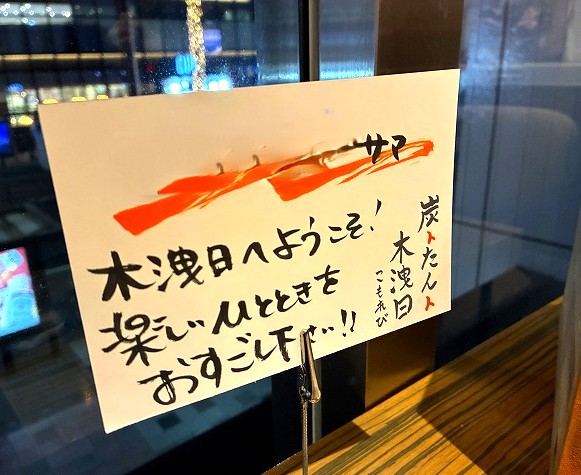 サマ
木洩日へようこそ!
楽しいひとときを
おすごし下さい!!
炭トたんト
木洩日
こもれび